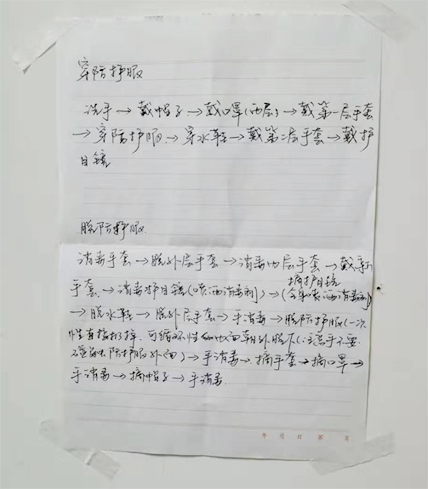 穿防护服
洗手→戴帽子→戴口罩(两层)→戴第一层手套
→穿防护服→穿水鞋→戴第二层手套→戴护
目镜
脱防护服
消毒手套→脱外层手套→消毒内层手套→戴新
手套→消毒护目镜(喷洒消毒剂)→摘护目镜→(全身喷洒消毒剂)
→脱水鞋→脱外层手套→手消毒→脱防护服(一次
性直接打掉,可循环性的由里朝外脱下(注意手不要
防护服外面)→手消毒→摘手套→摘口罩→
手消毒→摘帽子→手消毒
年 月 日 第 页